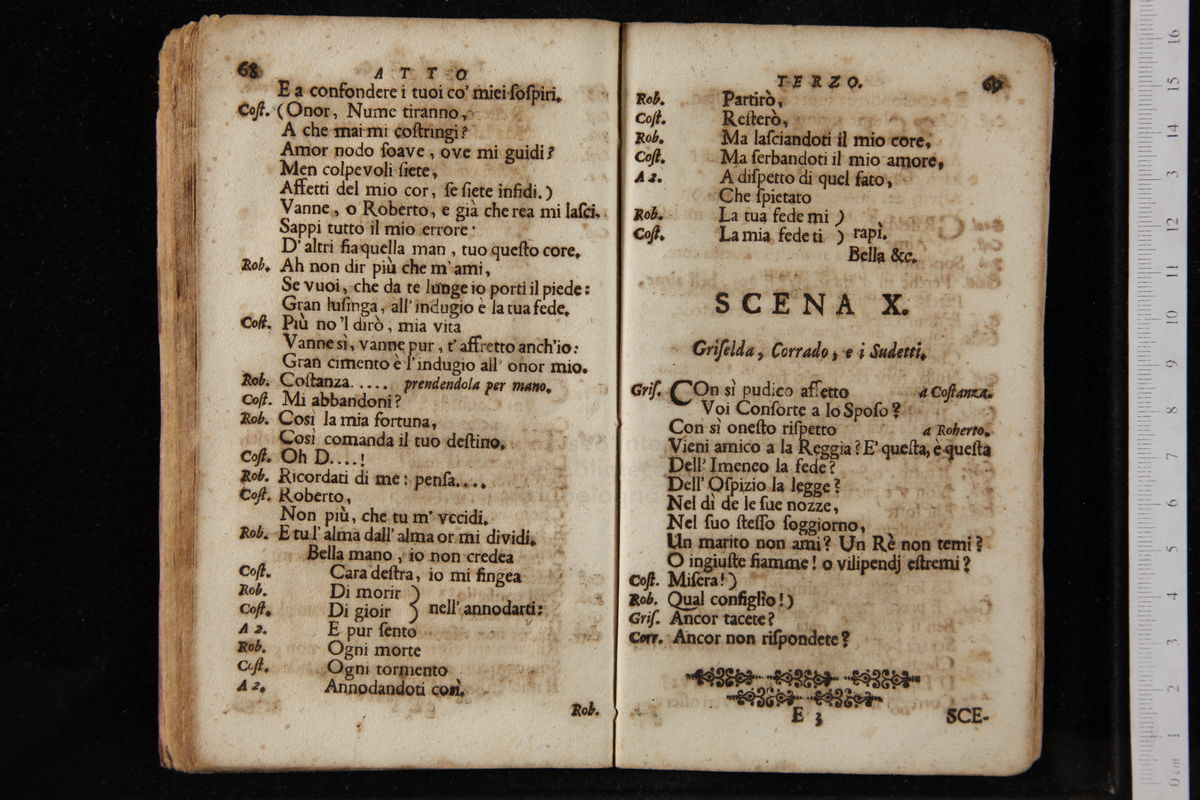 68
ATTO
E a confondere i tuoi co' miei ſoſpiri.
Coſt. (Onor, Nume tiranno,
A che mai mi coſtringi?
Amor nodo ſoave, ove mi guidi?
Men colpevoli ſiete,
Affetti del mio cor, ſe ſiete infidi.)
Vanne, o Roberto, e già che rea mi laſci.
Sappi tutto il mio errore:
D'altri fia quella man, tuo queſto core.
Rob. Ah non dir più che m'ami,
Se vuoi, che da te lunge io porti il piede:
Gran luſinga, all'indugio è la tua fede.
Coſt. Più no'l dirò, mia vita
Vanne sì, vanne pur, t'affretto anch'io:
Gran cimento è l'indugio all'onor mio.
Rob. Coſtanza..... prendendola per mano.
Coſt. Mi abbandoni?
Rob. Così la mia fortuna,
Così comanda il tuo deſtino.
Coſt. Oh D....!
Rob. Ricordati di me: penſa....
Coſt. Roberto,
Non più, che tu m'vccidi.
Rob. E tu l'alma dall'alma or mi dividi.
Bella mano, io non credea
Coſt. Cara deſtra, io mi fingea
Rob. Di morir )
Coſt. Di gioir ) nell'annodarti:
A 2. E pur ſento
Rob. Ogni morte
Coſt. Ogni tormento
A 2. Annodandoti così.
Rob.
TERZO.
69
Rob. Partirò,
Coſt. Reſterò,
Rob. Ma laſciandoti il mio core,
Coſt. Ma ſerbandoti il mio amore,
A 2. A diſpetto di quel fato,
Che ſpietato
Rob. La tua fede mi )
Coſt. La mia fede ti ) rapì.
Bella &c.
SCENA X.
Griſelda, Corrado, e i Sudetti.
Griſ. COn sì pudico affetto a Coſtanza.
Voi Conſorte a lo Spoſo?
Con sì oneſto riſpetto a Roberto.
Vieni amico a la Reggia? E' queſta, è queſta
Dell'Imeneo la fede?
Dell'Oſpizio la legge?
Nel dì de le ſue nozze,
Nel ſuo ſteſſo ſoggiorno,
Un marito non ami? Un Rè non temi?
O ingiuſte fiamme! o vilipendj eſtremi?
Coſt. Miſera!)
Rob. Qual conſiglio!)
Griſ. Ancor tacete?
Corr. Ancor non riſpondete?
E 3
SCE-
0 cm 1 2 3 4 5 6 7 8 9 10 11 12 13 14 15 16